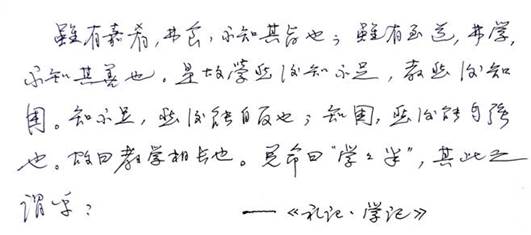 虽有嘉肴,弗食,不知其旨也;虽有至道,弗学,
不知其善也。是故学然后知不足,教然后知
困。知不足,然后能自反也;知困,然后能自强
也。故曰教学相长也。兑命曰“学学半”,其此之
谓乎?
——《礼记·学记》